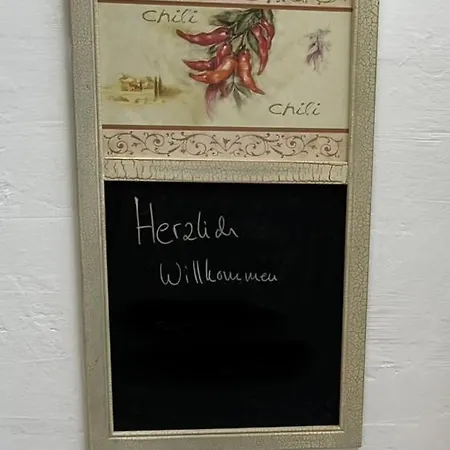 Chili
Chili
Herzlich
Willkommen